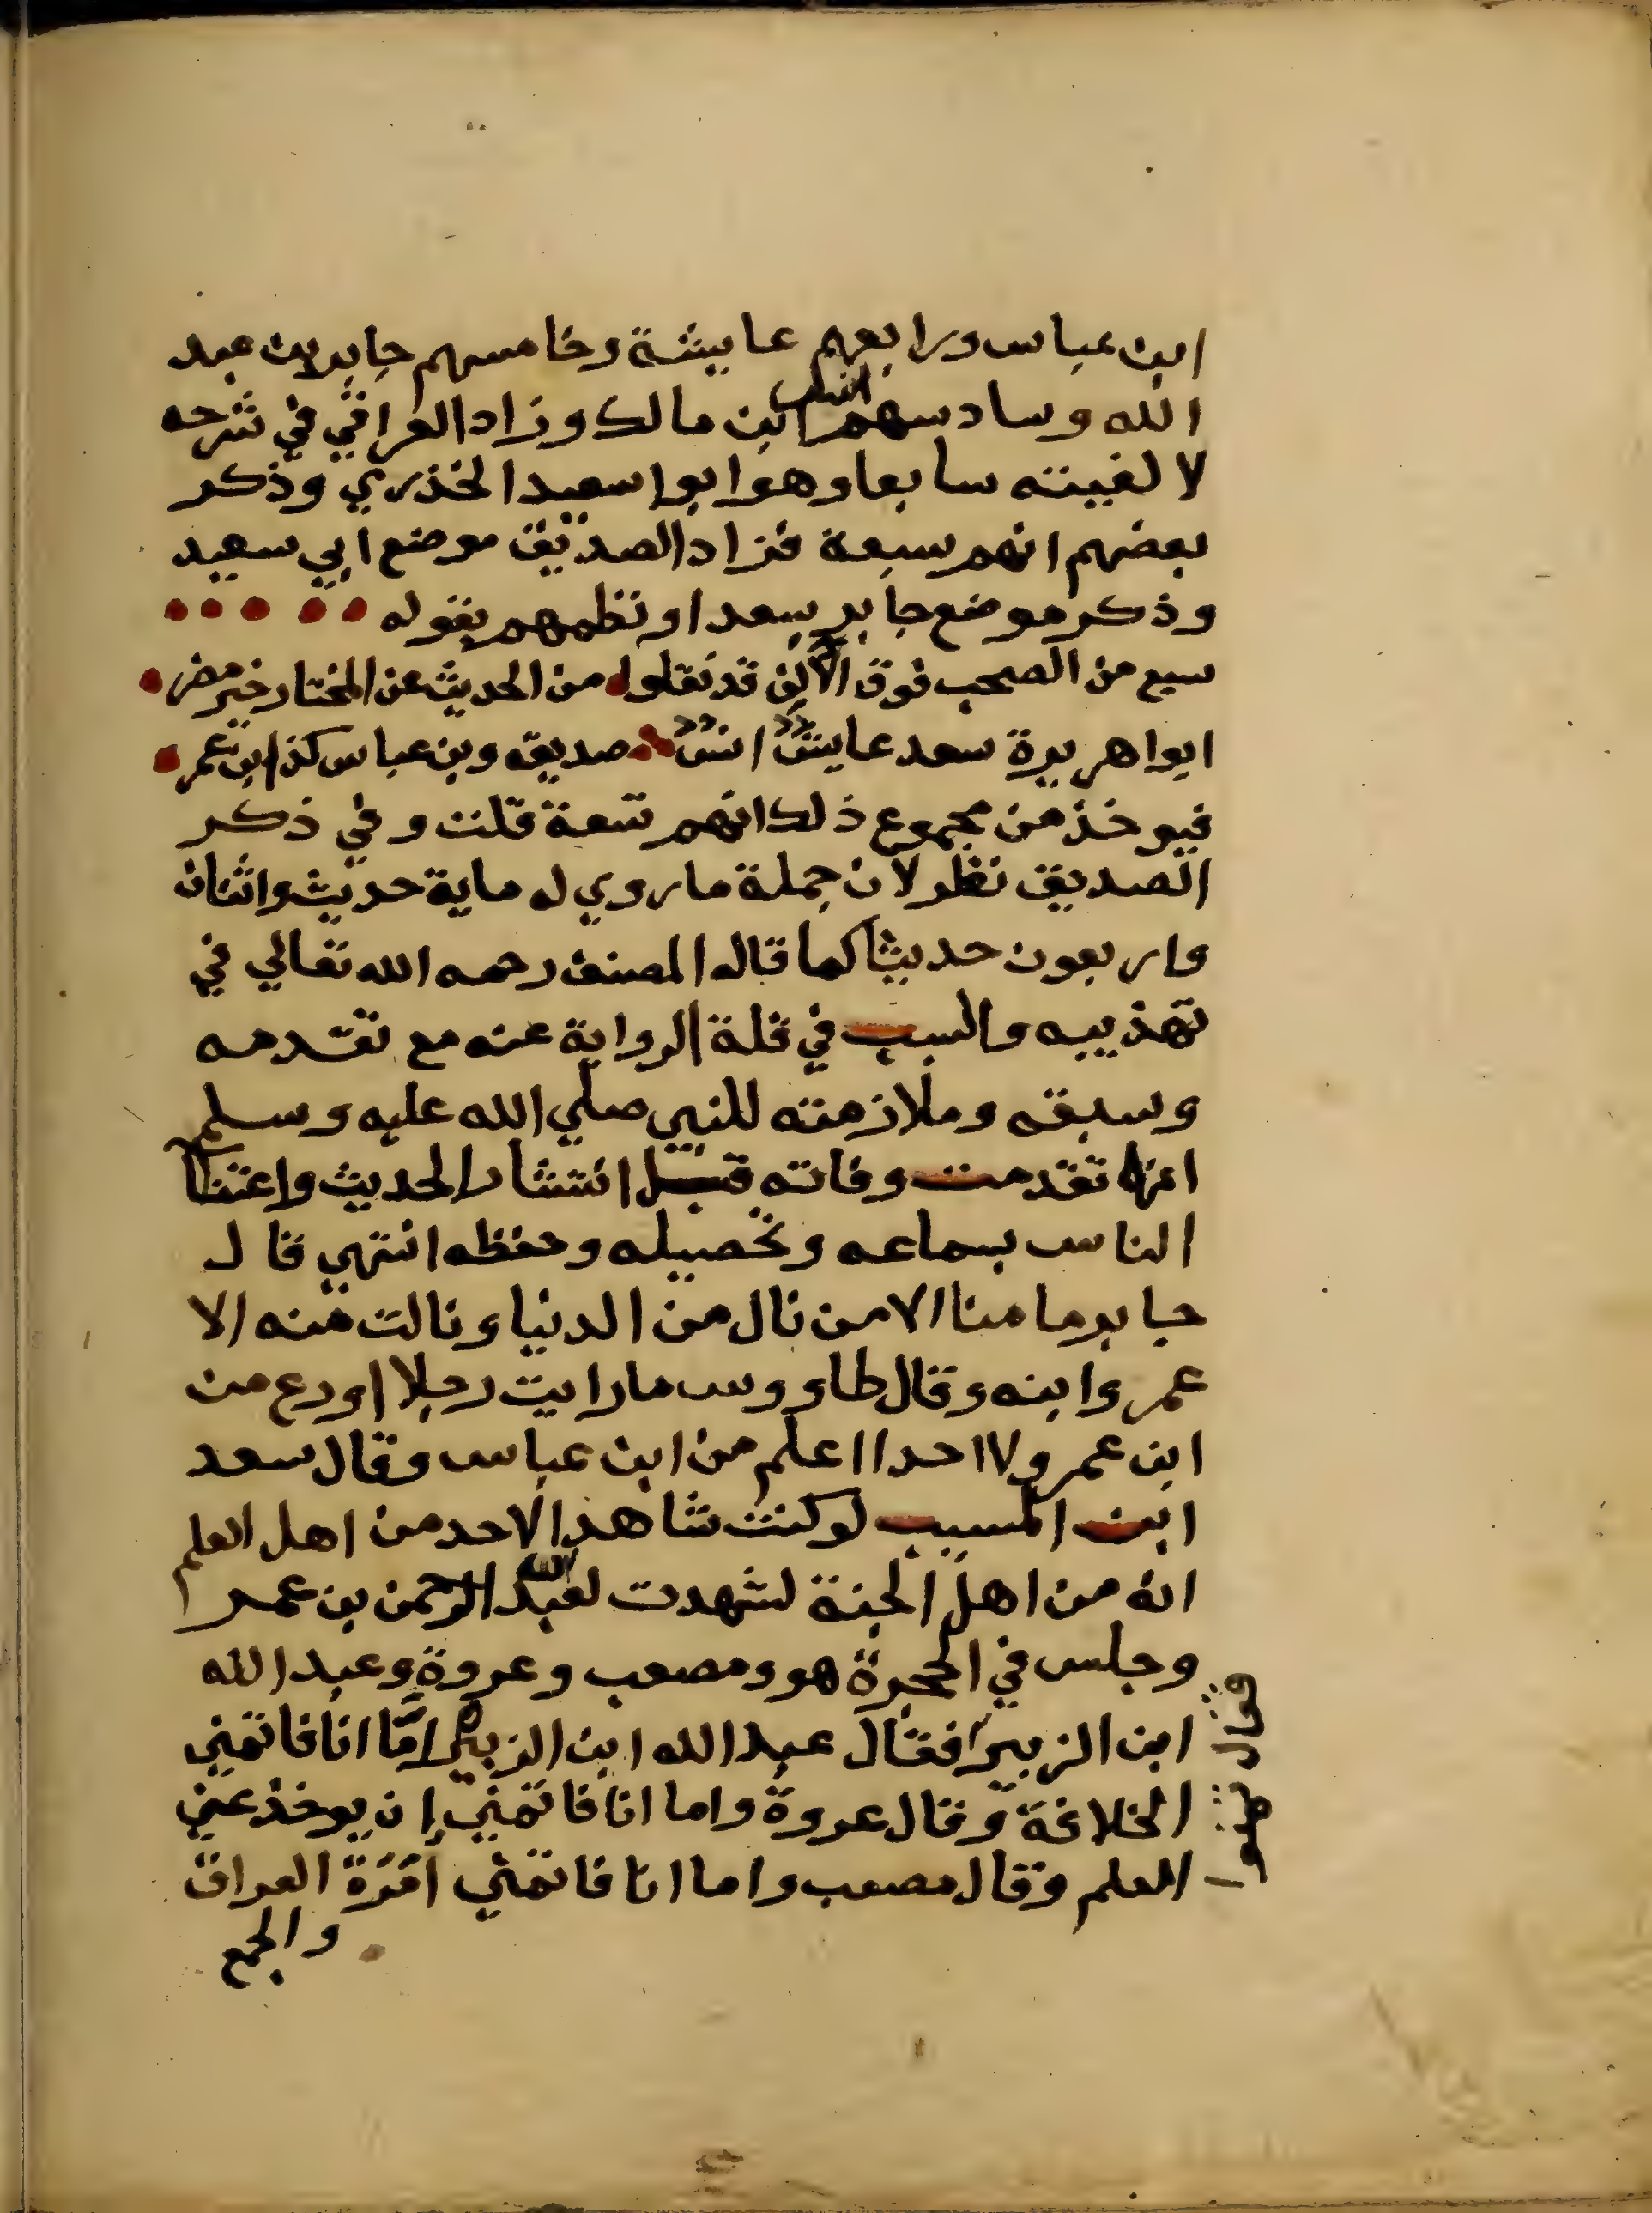 ابن عباس ورابعهم عايشة وخامسهم جابر بن عبد
الله وسادسهم انس ابن مالك وزاد العراقي في شرحه
لالفيته سابعا وهو ابوا سعيد الخذري وذكر
بعضهم انهم سبعة فزاد الصديق موضع ابي سعيد
وذكر موضع جابر سعدا ونظمهم بقوله
سبع من الصحب فوق الالف قد نقلوا من الحديث عن المختار خير مضر
ابوا هريرة سعد عايش انس صديق وبن عباس كذا ابن عمر
فيوخذ من مجموع ذلك انهم تسعة قلت وفي ذكر
الصديق نظر لان جملة ما روي له ماية حديث واثنان
واربعون حديثا كما قاله المصنف رحمه الله تعالي في
تهذيبه والسبب في قلة الرواية عنه مع تقدمه
وسبقه وملازمته للنبي صلي الله عليه وسلم
انه تقدمت وفاته قبل انتشار الحديث واعتنا
الناس بسماعه وتحصيله وحفظه انتهي قال
جابر ما منا الا من نال من الدنيا ونالت منه الا
عمر وابنه وقال طاووس ما رايت رجلا اورع من
ابن عمر ولا احدا اعلم من ابن عباس وقال سعد
ابن المسيب لو كنت شاهدا لاحد من اهل العلم
انه من اهل الجنة لشهدت لعبد الله الرحمن بن عمر
وجلس في الحجرة هو ومصعب وعروة وعبد الله
ابن الزبير فقال عبد الله ابن الزبير امّا انا فاتمني
الخلافة وقال عروة واما انا فاتمني ان يوخذ عني
العلم وقال مصعب واما انا فاتمني امَرَة العراق
والجمع
فقال تمنوا